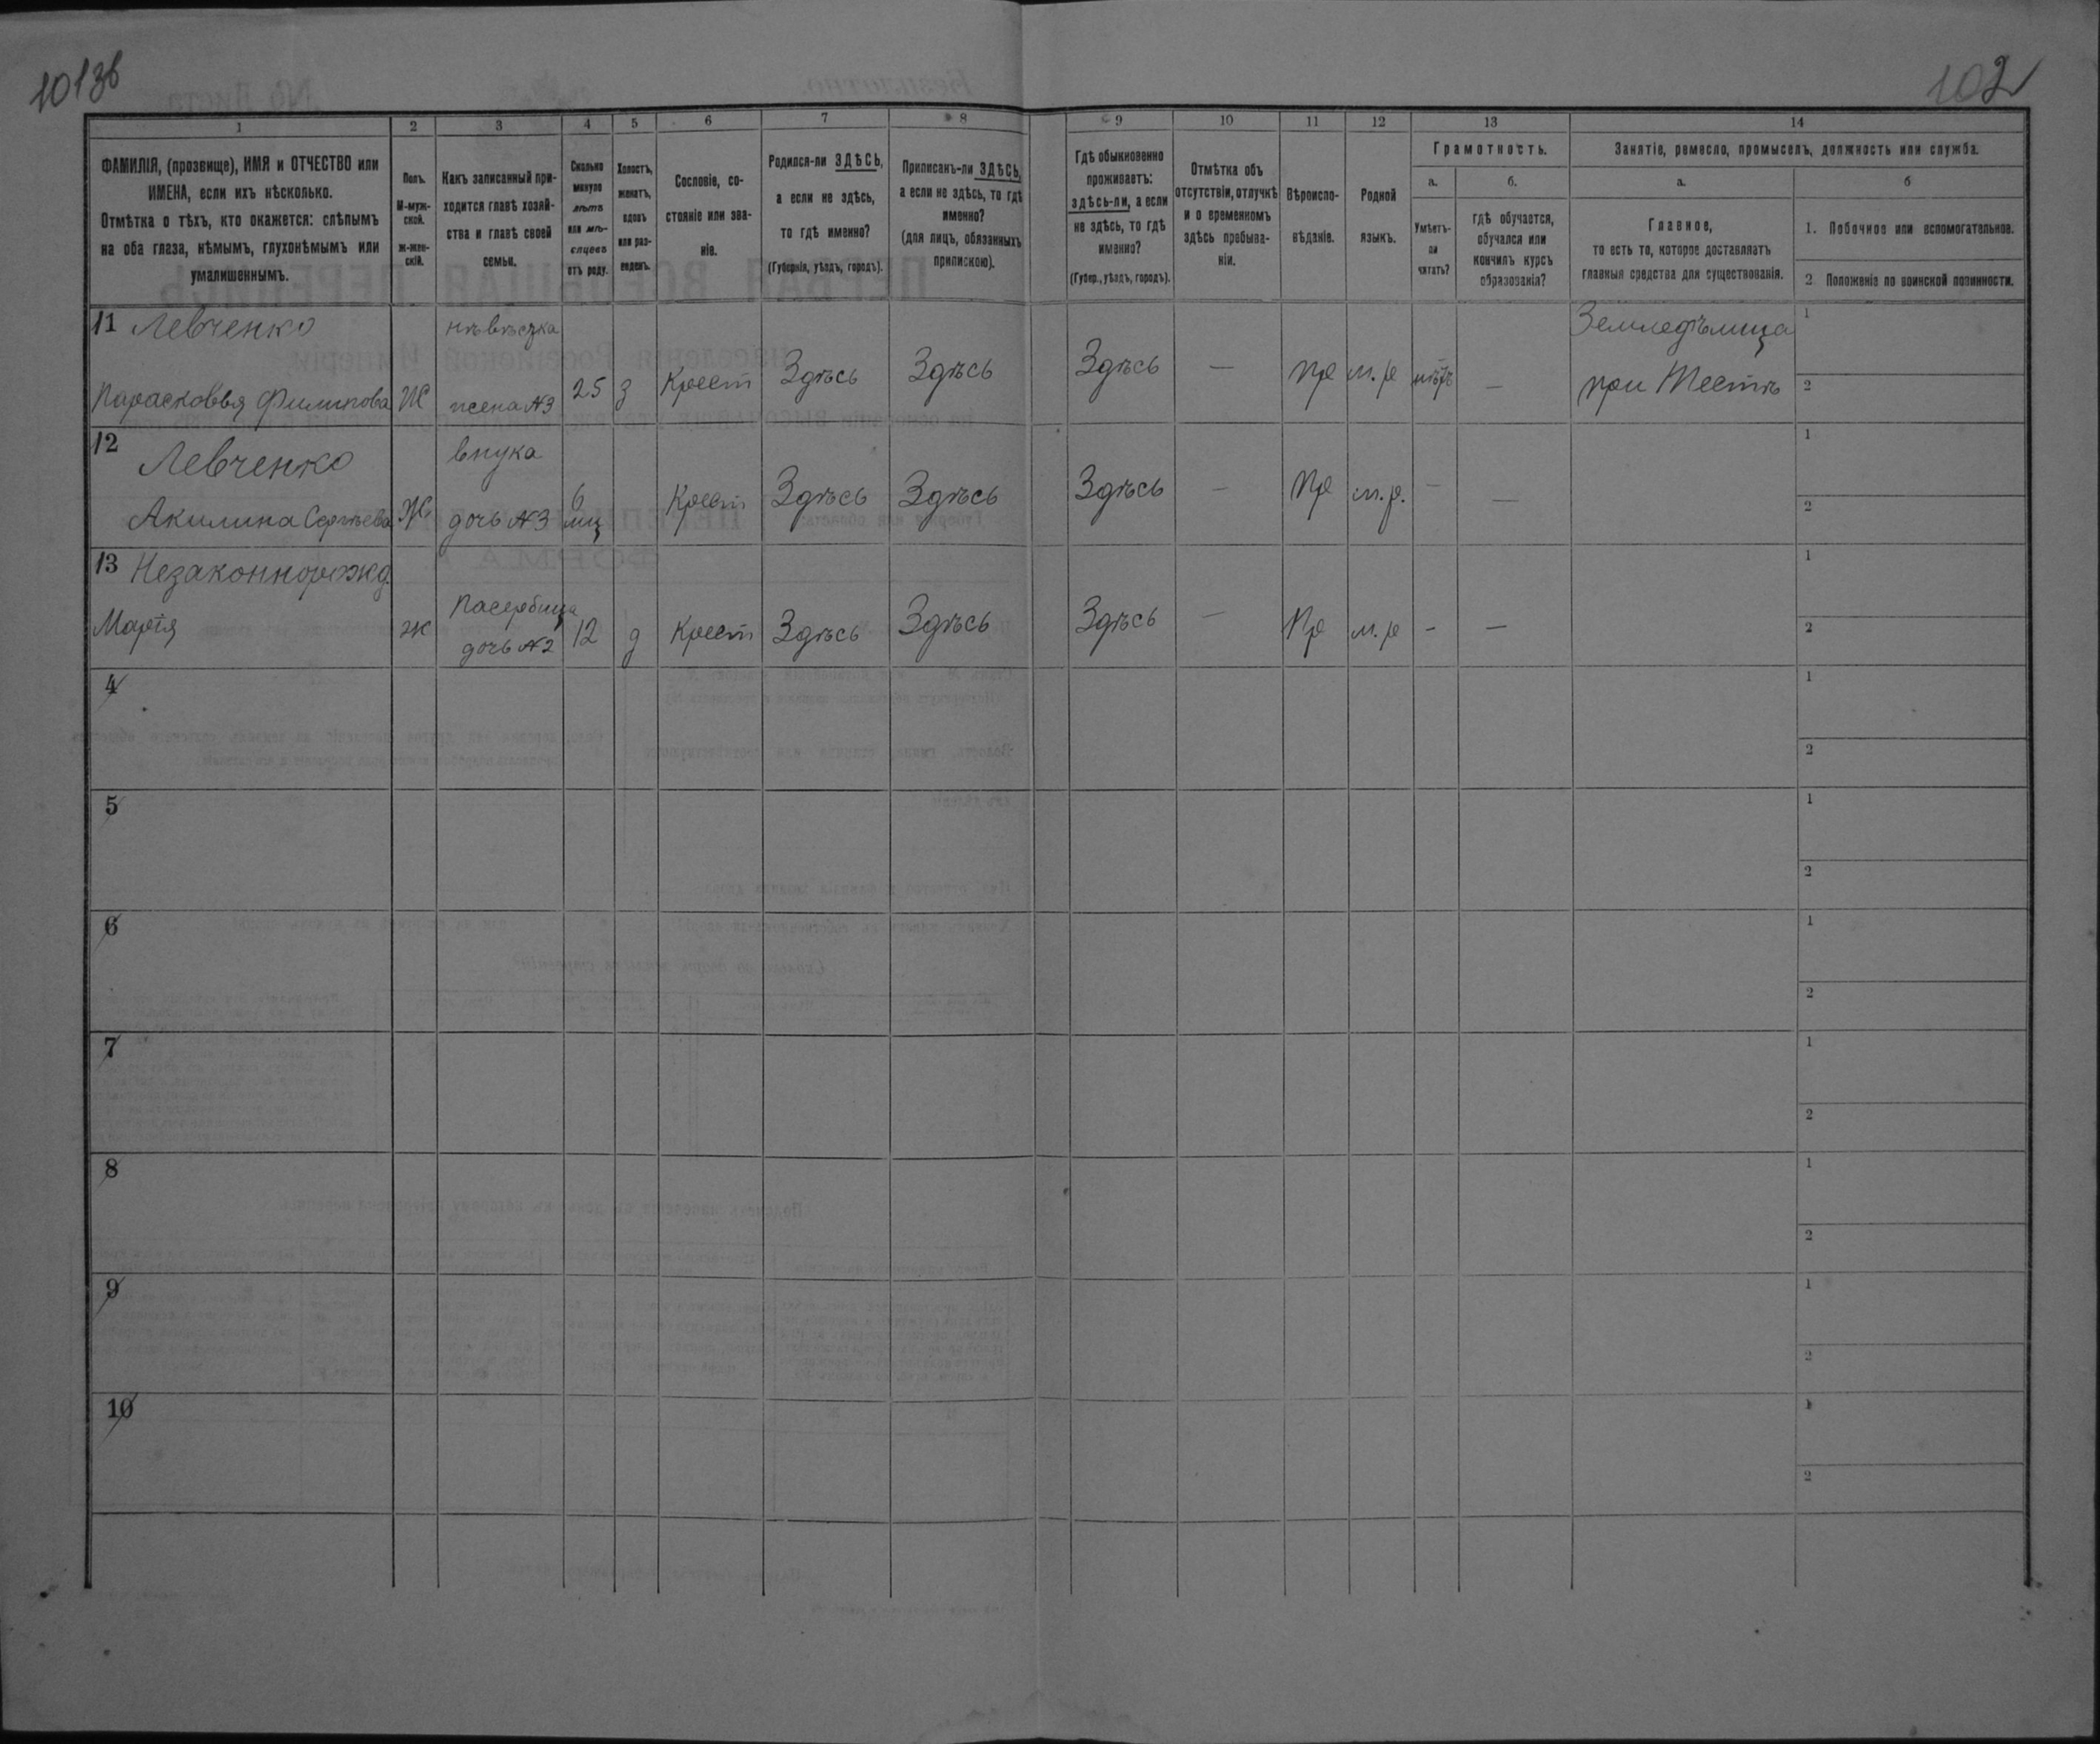 101 зв
102
1 2 3 4 5 6 7 8 9 10 11 12 13 14
ФАМИЛІЯ, (прозвище), ИМЯ и ОТЧЕСТВО или
ИМЕНА, если ихъ нѣсколько.
Отмѣтка о тѣхъ, кто окажется: слѣпымъ
на оба глаза, нѣмымъ, глухонѣмымъ или
умалишеннымъ.
Полъ.
М-муж-
ской.
ж-жен-
скій.
Какъ записанный при-
ходится главѣ хозяй-
ства и главѣ своей
семьи.
Сколько
минуло
лѣтъ
или мѣ-
сяцевъ
отъ роду.
Холостъ,
женатъ,
вдовъ
или раз-
веденъ.
Сословіе, со-
стояніе или зва-
ніе.
Родился-ли ЗДѢСЬ,
а если не здѣсь,
то гдѣ именно?
(Губернія, уѣздъ, городъ).
Приписанъ-ли ЗДѢСЬ,
а если не здѣсь, то гдѣ
именно?
(для лицъ, обязанныхъ
припискою).
Гдѣ обыкновенно
проживаетъ:
здѣсь-ли, а если
не здѣсь, то гдѣ
именно?
(Губер., уѣздъ, городъ).
Отмѣтка объ
отсутствіи, отлучкѣ
и о временномъ
здѣсь пребыва-
ніи.
Вѣроиспо-
вѣданіе.
Родной
языкъ.
Грамотность.
а.
Умѣетъ-
ли
читать?
б.
гдѣ обучается,
обучался или
кончилъ курсъ
образованія?
Занятіе, ремесло, промыселъ, должность или служба.
а.
Главное,
то есть то, которое доставляетъ
главныя средства для существованія.
б
1. Побочное или вспомогательное.
2 Положеніе по воинской повинности.
11 Левченко
Парасковья Филипова
Ж
нѣвѣстка
жена №3
25
з
Крест
Здѣсь
Здѣсь
Здѣсь
—
Пр
м. р
нѣтъ
—
Земледѣлица
при Тестѣ
1
2
12
Левченко
Акилина Сергѣева
Ж
внука
дочь №3
6
мц
Крест
Здѣсь
Здѣсь
Здѣсь
—
Пр
м. р.
—
—
1
2
13 Незаконнорожд.
Марія
ж
Пасербица
дочь №2
12
д
Крест
Здѣсь
Здѣсь
Здѣсь
—
Пр
м. р
-
—
1
2
4
1
2
5
1
2
6
1
2
7
1
2
8
1
2
9
1
2
10
1
2